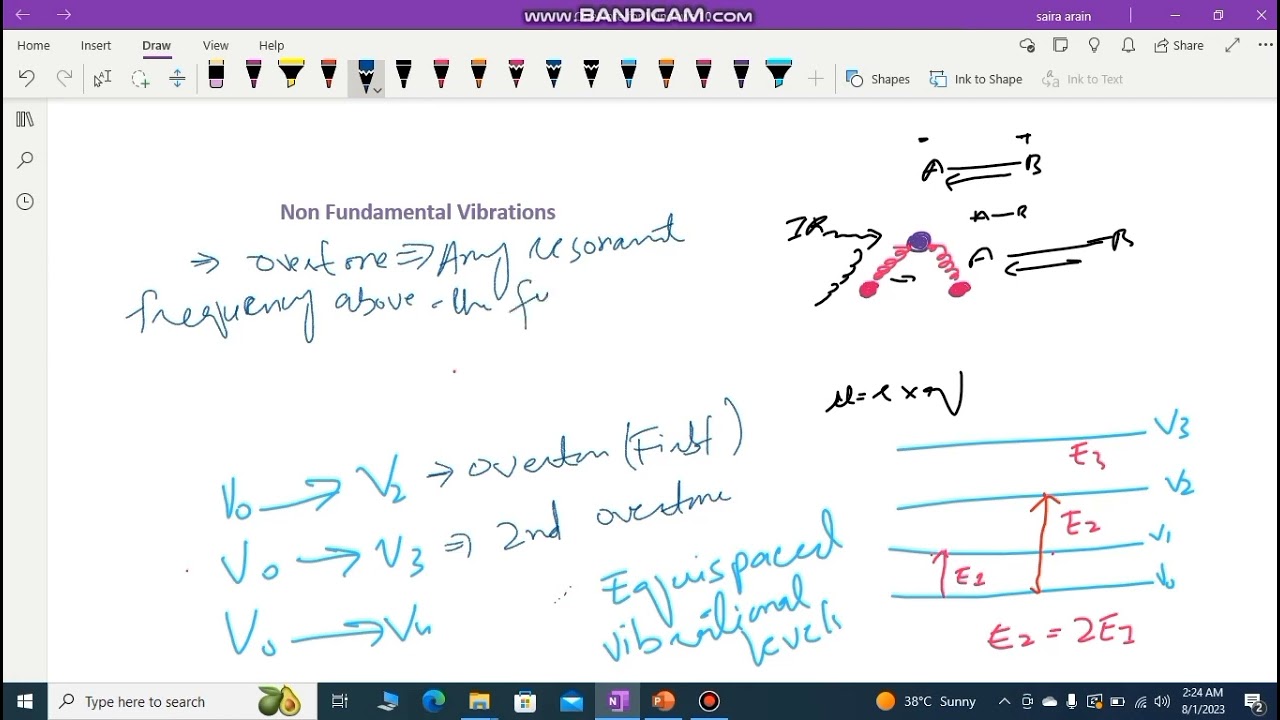 www.BANDICAM.com
saira arain
Home Insert Draw View Help
Share
Shapes
Ink to Shape
Ink to Text
- +
A B
A-B
IR
A B
Non Fundamental Vibrations
⇒ overtone ⇒ Any resonant
frequency above the fu
V0 → V2 → overton (First)
V0 → V3 ⇒ 2nd overtone
V0 → V4
Equispaced
vibrational
levels
V3
E3
V2
E2
V1
E1
V0
E2 = 2E1
Type here to search
38°C Sunny
2:24 AM
8/1/2023
2